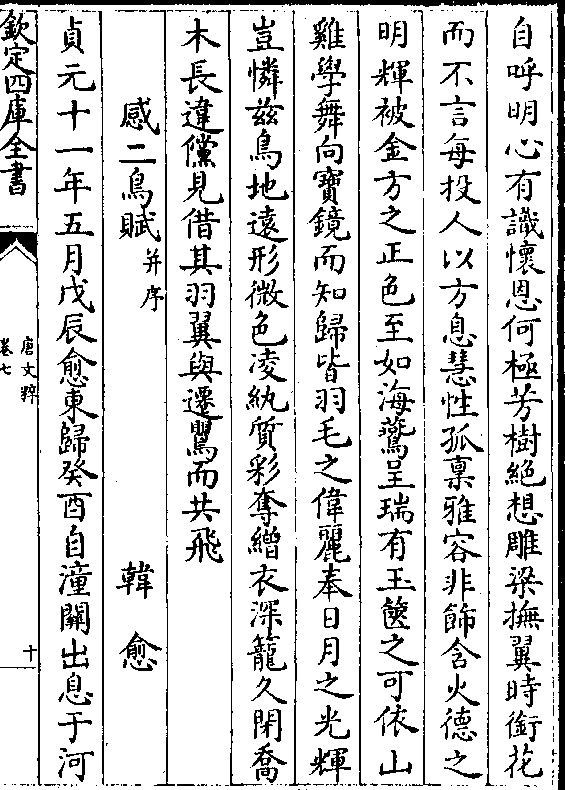 自呼明心有識懷恩何極芳樹絕想雕梁撫翼時銜花
而不言每投人以方息慧性孤稟雅容非飾含火德之
明輝被金方之正色至如海鷰呈瑞有玉篋之可依山
雞學舞向寶鏡而知歸皆羽毛之偉麗奉日月之光輝
豈憐茲鳥地遠形微色凌紈質彩奪繒衣深籠久閉喬
木長違儻見借其羽翼與遷鸎而共飛
感二鳥賦 并序 韓愈
貞元十一年五月戊辰愈東歸癸酉自潼關出息于河
欽定四庫全書
唐文粹
卷七
十